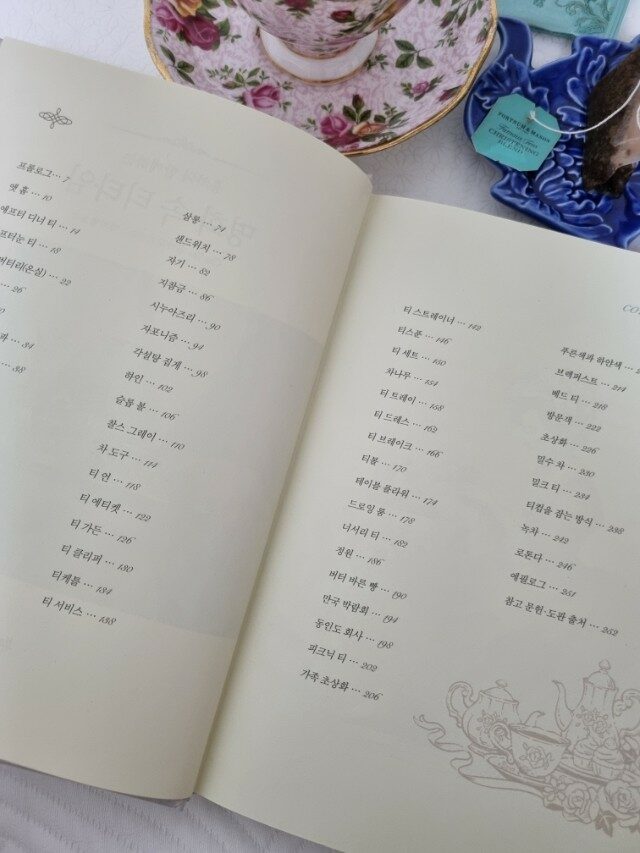 FORTNUM & MASON
CHRISTENING
BLEND
프롤로그 … 7
앳 홈 … 10
애프터 디너 티 … 14
프터눈 티 … 18
버터리(온실) … 22
… 26
… 34
… 38
살롱 … 74
샌드위치 … 78
자기 … 82
지참금 … 86
시누아즈리 … 90
자포니즘 … 94
각설탕 집게 … 98
하인 … 102
슬롭 볼 … 106
찰스 그레이 … 110
차 도구 … 114
티 언 … 118
티 에티켓 … 122
티 가든 … 126
티 클리퍼 … 130
티케틀 … 134
티 서비스 … 138
티 스트레이너 … 142
티스푼 … 146
티 세트 … 150
차나무 … 154
티 트레이 … 158
티 드레스 … 162
티 브레이크 … 166
티볼 … 170
테이블 플라워 … 174
드로잉 룸 … 178
너서리 티 … 182
정원 … 186
버터 바른 빵 … 190
만국 박람회 … 194
동인도 회사 … 198
피크닉 티 … 202
가족 초상화 … 206
푸른색과 하얀색 …
브랙퍼스트 … 214
베드 티 … 218
방문객 … 222
초상화 … 226
밀수 차 … 230
밀크 티 … 234
티컵을 잡는 방식 … 238
녹차 … 242
로톤다 … 246
에필로그 … 251
참고 문헌·도판 출처 … 252